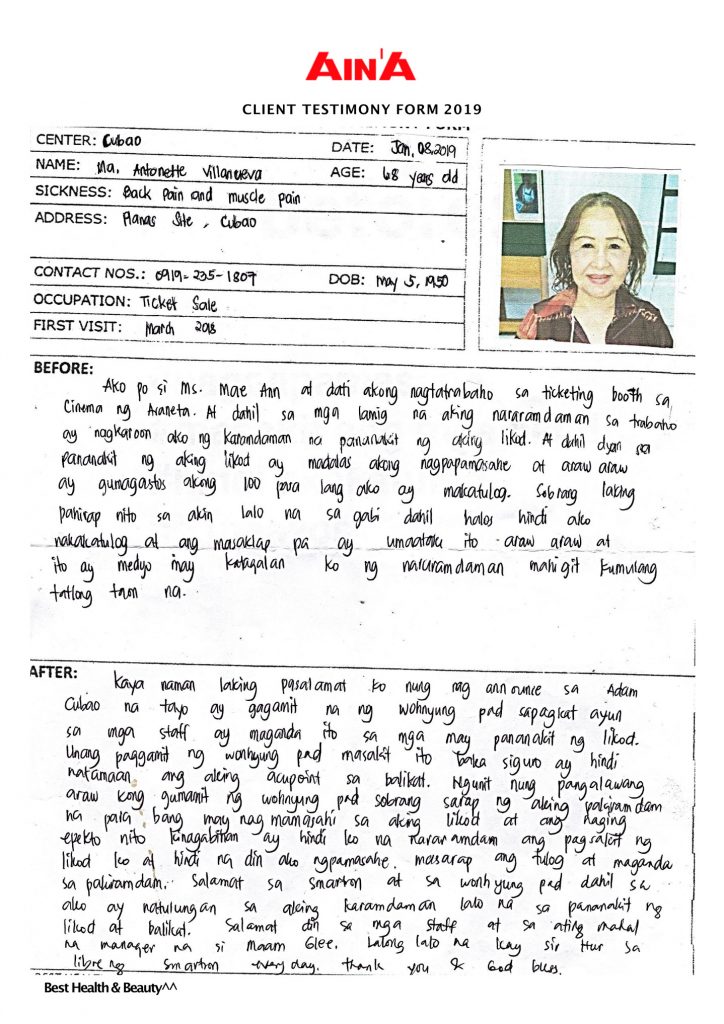 AIN'A
CLIENT TESTIMONY FORM 2019
CENTER: Cubao
DATE: Jan, 08, 2019
NAME: Ma. Antonette Villanueva
AGE: 68 years old
SICKNESS: Back Pain and muscle pain
ADDRESS: Planas Site, Cubao
CONTACT NOS.: 0919-235-1807
DOB: May 5, 1950
OCCUPATION: Ticket Sale
FIRST VISIT: March 2018
BEFORE:
Ako po si Ms. Mae Ann at dati akong nagtatrabaho sa ticketing booth sa
Cinema ng Araneta. At dahil sa mga lamig na aking nararamdaman sa trabaho
ay nagkaroon ako ng karandaman na pananakit ng aking likod. At dahil dyan sa
pananakit ng aking likod ay madalas akong nagpapamasahe at araw araw
ay gumagastos akong 100 para lang ako ay makatulog. Sobrang laking
pahirap nito sa akin lalo na sa gabi dahil halos hindi ako
nakakatulog at ang masaklap pa ay umaatake ito araw araw at
ito ay medyo may katagalan ko ng nararamdaman mahigit kumulang
tatlong taon na.
AFTER:
Kaya naman laking pasalamat ko nung nag announce sa Adam
Cubao na tayo ay gagamit na ng wohnyung pad sapagkat ayun
sa mga staff ay maganda ito sa mga may pananakit ng likod.
Unang paggamit ng wonhyung pad masakit ito baka siguro ay hindi
natamaan ang aking acupoint sa balikat. Ngunit nung pangalawang
araw kong gumamit ng wohnyung pad sobrang sarap ng aking pakiramdam
na para bang may nag mamasahi sa aking likod at ang naging
epekto nito kinagabihan ay hindi ko na nararamdam ang pagsakit ng
likod ko at hindi na din ako ngpamasahe. masarap ang tulog at maganda
sa pakiramdam. Salamat sa smartron at sa wonhyung pad dahil sa
ako ay natulungan sa aking karamdaman lalo na sa pananakit ng
likod at balikat. Salamat din sa mga staff at sa ating mahal
na manager na si Maam Glee. Lalong lalo na kay sir Hur sa
libreng smartron everyday. thank you & God bless.
Best Health & Beauty^^